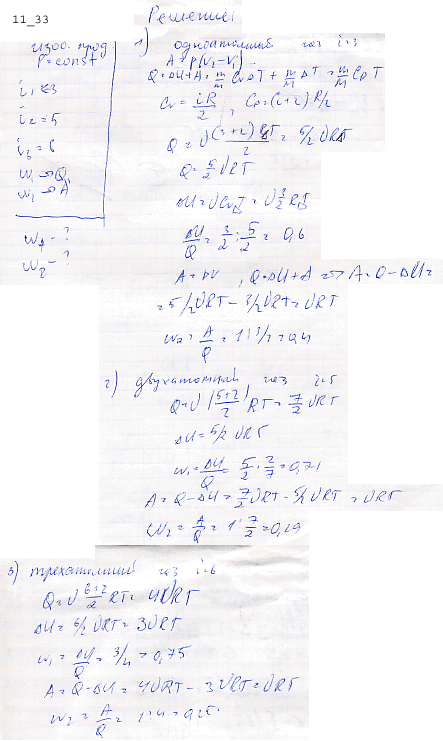 11_33
Решение:
изоб. проц
P=const
i₁=3
i₂=5
i₃=6
w₁ → Q,
w₂ → A
w₁ - ?
w₂ - ?
1) одноатомный газ i=3
A=p(V₂-V₁)
Q=ΔU+A= m/M CᵥΔT + m/M ΔT = m/M CpΔT
Cᵥ = iR/2 , Cp=(i+2)R/2
Q=ν(3+2)RT/2 = 5/2 νRT
Q= 5/2 νRT
ΔU=νCᵥT=ν 3/2 RT
ΔU/Q = 3/2 : 5/2 = 0,6
A=pV , Q=ΔU+A => A=Q-ΔU=
=5/2νRT - 3/2νRT=νRT
w₂= A/Q = 1: 5/2=0,4
2) двухатомный газ i=5
Q=ν(5+2/2)RT= 7/2 νRT
ΔU=5/2 νRT
w₁= ΔU/Q = 5/2 · 2/7 =0,71
A=Q-ΔU= 7/2νRT- 5/2νRT =νRT
w₂= A/Q = 1: 7/2 =0,29
3) трехатомный газ i=6
Q=ν 6+2/2 RT= 4νRT
ΔU= 6/2 νRT=3νRT
w₁= ΔU/Q = 3/4 =0,75
A=Q-ΔU=4νRT-3νRT=νRT
w₂= A/Q = 1:4=0,25.